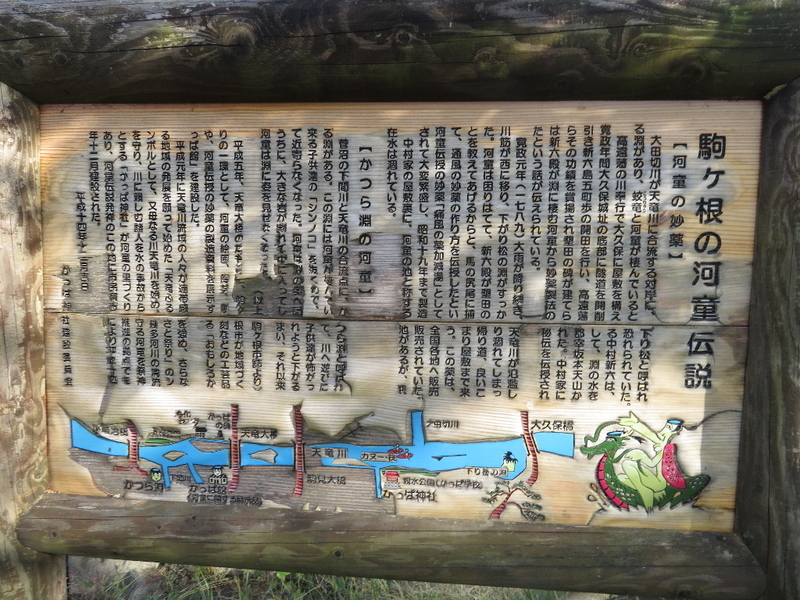 駒ヶ根の河童伝説
【河童の妙薬】
大田切川が天竜川に合流する対岸に、下り松と呼ばれ
る淵があり、蛟蛇と河童が棲んでいると恐れられていた。
高遠藩の川奉行で大久保に屋敷を構える中村新六は、
寛政年間大久保城址の底部に隧道を開削して、淵の水を
引き新六島五町歩の開田を行い、高遠藩郡宰坂本天山か
らその功績を賞揚され墾田の碑が建てられた。中村家に
は新六殿が淵に棲む河童から妙薬製法の秘伝を伝授され
たという話が伝えられている。
寛政元年(一七八九)大雨が降り続き天竜川が氾濫し
川筋が西に移り、下がり松の淵がすっかり涸れてしまっ
た。河童は困りはてて、新六殿が墾田の帰り道、良いこ
とを教えてあげるからと、馬の尻尾に捕まり屋敷まで来
て、通風の妙薬の作り方を伝授したという。この薬は、
河童伝授の妙薬「痛風の薬加減湯」として全国各地へ販売
されて大変繁盛し、昭和十九年まで製造販売されていた。
中村家の屋敷裏に、河童の池と称する池があるが、現
在水は涸れている。
【かつら淵の河童】
菅沼の下間川と天竜川の合流点に、かつら淵と呼ばれ
る淵がある。この淵には河童が棲んでいて、川へ遊びに
来る子供達の「シンノコ」を抜くので、子供達が怖がっ
て近寄らなくなった。河童は
うちに、大きな
河童は淵に姿を見せなくなった
平成五年、天竜大橋の
りの一環として、河童の
や、河童伝授の妙薬の
っぱ館」を建設した。
平成元年に天竜川流域の人々が連帯感を強め、さらな
る地域の発展を願って始めた「天竜ふるさと祭り」のシ
ンボルとして、又母なる川天竜川を始め、幾多河川の清流
を守り、川に親しむ諸人を水の事故から守る河童を祭神
とする「かっぱ神社」が河童の里づくり推進の拠点でも
あり、河童伝説発祥のこの地に
年十二月建設された。
平成十四年十二月
大久保橋
大田切川
下り松の淵
カヌー
かっぱ神社
天竜川
駒見大橋
天竜大橋
かっぱ館
かつら淵